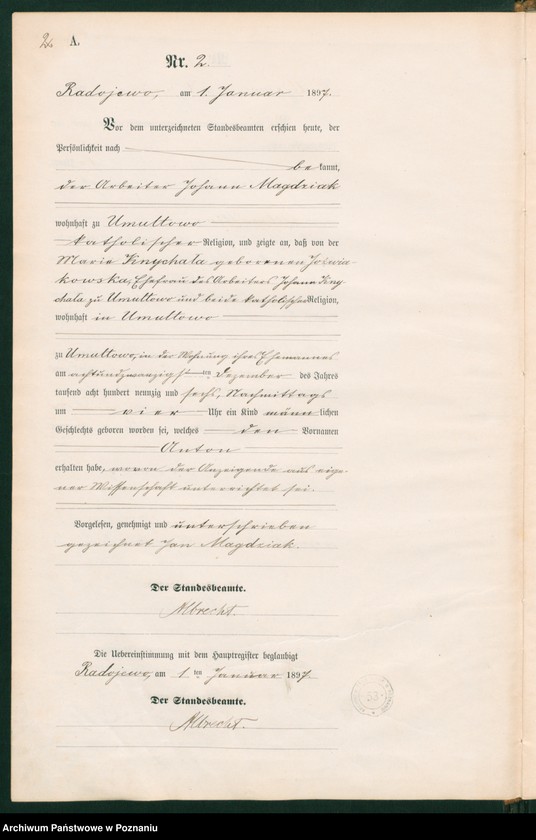 2. A.
Nr. 2.
Radojewo, am 1. Januar 1897.
Vor dem unterzeichneten Standesbeamten erschien heute, der
Persönlichkeit nach
bekannt,
der Arbeiter Johann Magdziak
wohnhaft zu Umultowo
katholischer Religion, und zeigte an, daß von der
Marie Knychala geborenen Jozwia-
kowska, Ehefrau des Arbeiters Johann Kny-
chała zu Umultowo und beide katholischer Religion,
wohnhaft in Umultowo
zu Umultowo, in der Wohnung ihres Ehemannes
am achtundzwanzigsten Dezember des Jahres
tausend acht hundert neunzig und sechs, Nachmittags
um vier Uhr ein Kind männlichen
Geschlechts geboren worden sei, welches den Vornamen
Anton
erhalten habe, wovon der Anzeigende aus eige-
ner Wissenschaft unterrichtet sei.
Vorgelesen, genehmigt und unterschrieben
gezeichnet Jan Magdziak.
Der Standesbeamte.
Albrecht.
Die Uebereinstimmung mit dem Hauptregister beglaubigt
Radojewo, am 1 ten Januar 1897.
Der Standesbeamte.
Albrecht.
53
Archiwum Państwowe w Poznaniu